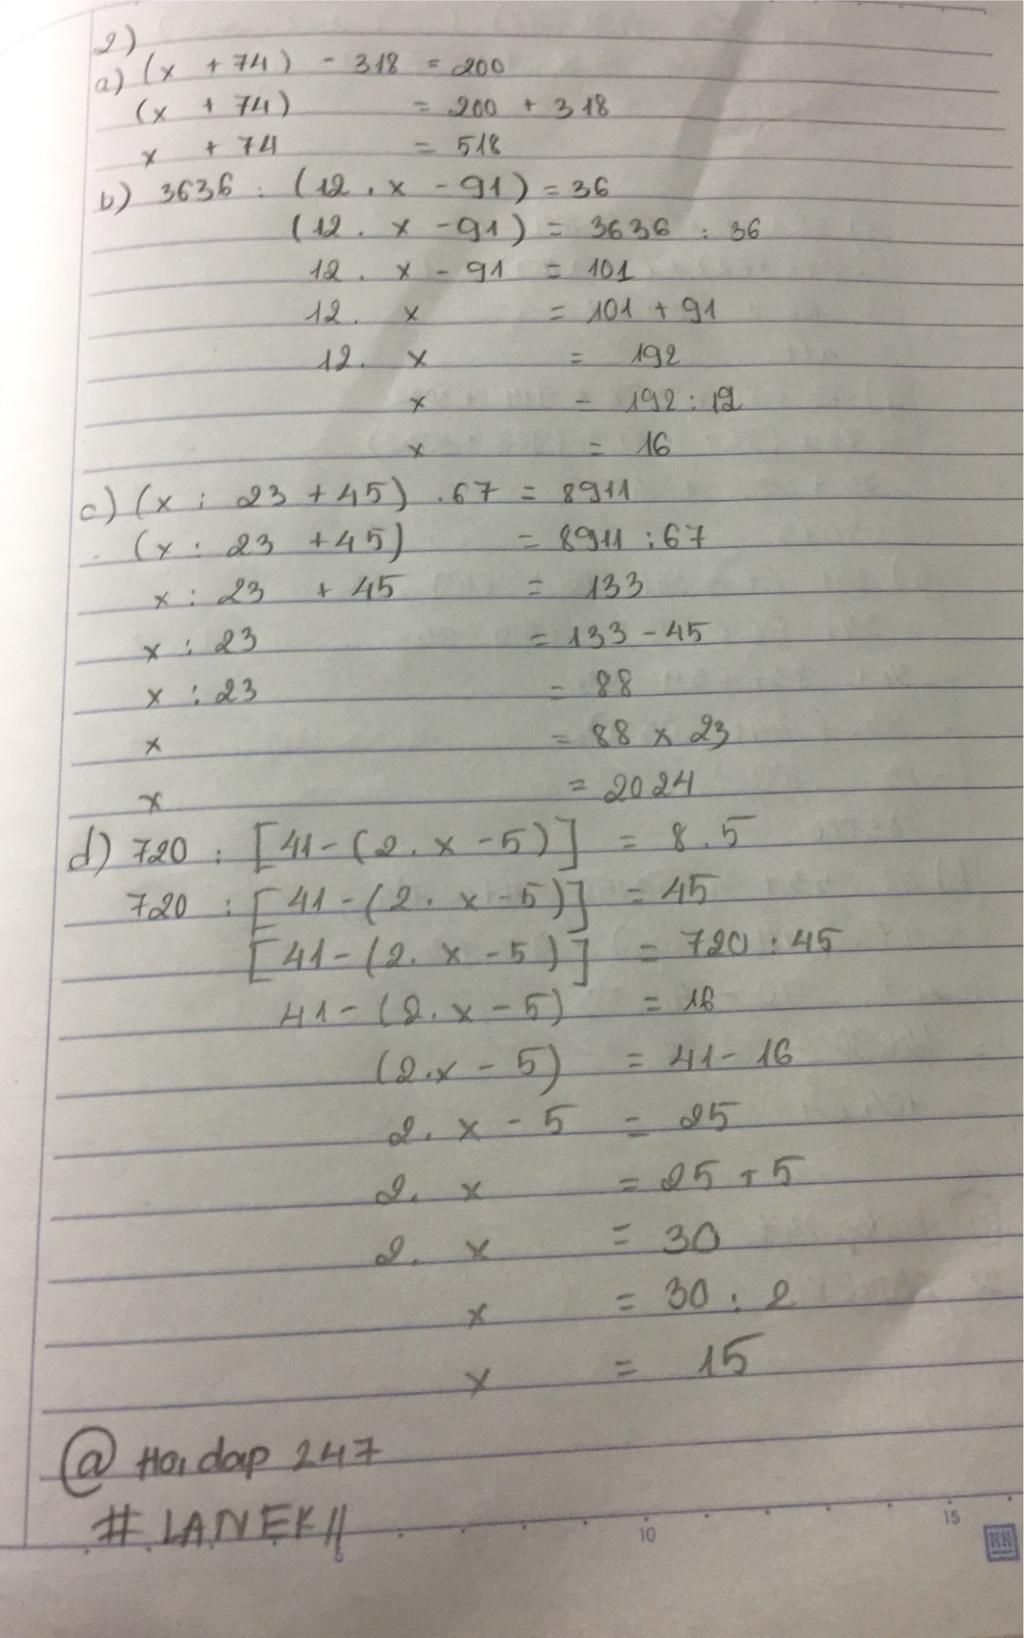 2)
a) (x + 74) - 318 = 200
(x + 74) = 200 + 318
x + 74 = 518
b) 3636 : (12 . x - 91) = 36
(12 . x - 91) = 3636 : 36
12 . x - 91 = 101
12 . x = 101 + 91
12 . x = 192
x = 192 : 12
x = 16
c) (x : 23 + 45) . 67 = 8911
(x : 23 + 45) = 8911 : 67
x : 23 + 45 = 133
x : 23 = 133 - 45
x : 23 = 88
x = 88 x 23
x = 2024
d) 720 : [41 - (2 . x - 5)] = 8 . 5
720 : [41 - (2 . x - 5)] = 45
[41 - (2 . x - 5)] = 720 : 45
41 - (2 . x - 5) = 16
(2 . x - 5) = 41 - 16
2 . x - 5 = 25
2 . x = 25 + 5
2 . x = 30
x = 30 : 2
x = 15
@ Hoidap 247
# LANEK//
5 10 15
HH